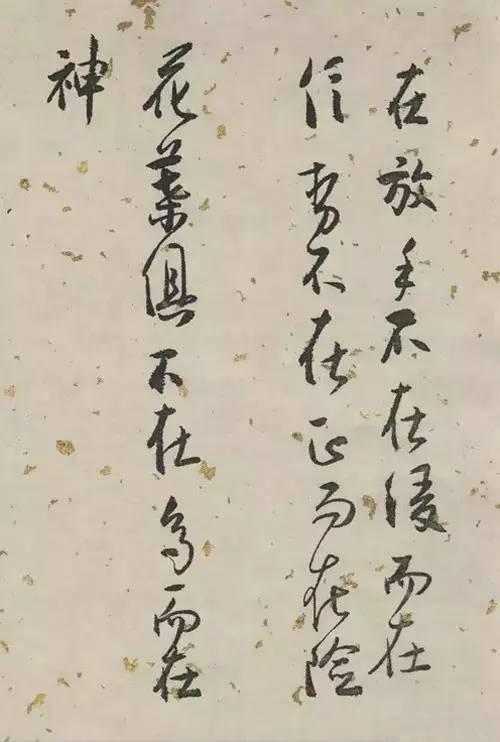 在放手不在緩而在
信勢不在正而在險
花葉俱不在而在
神